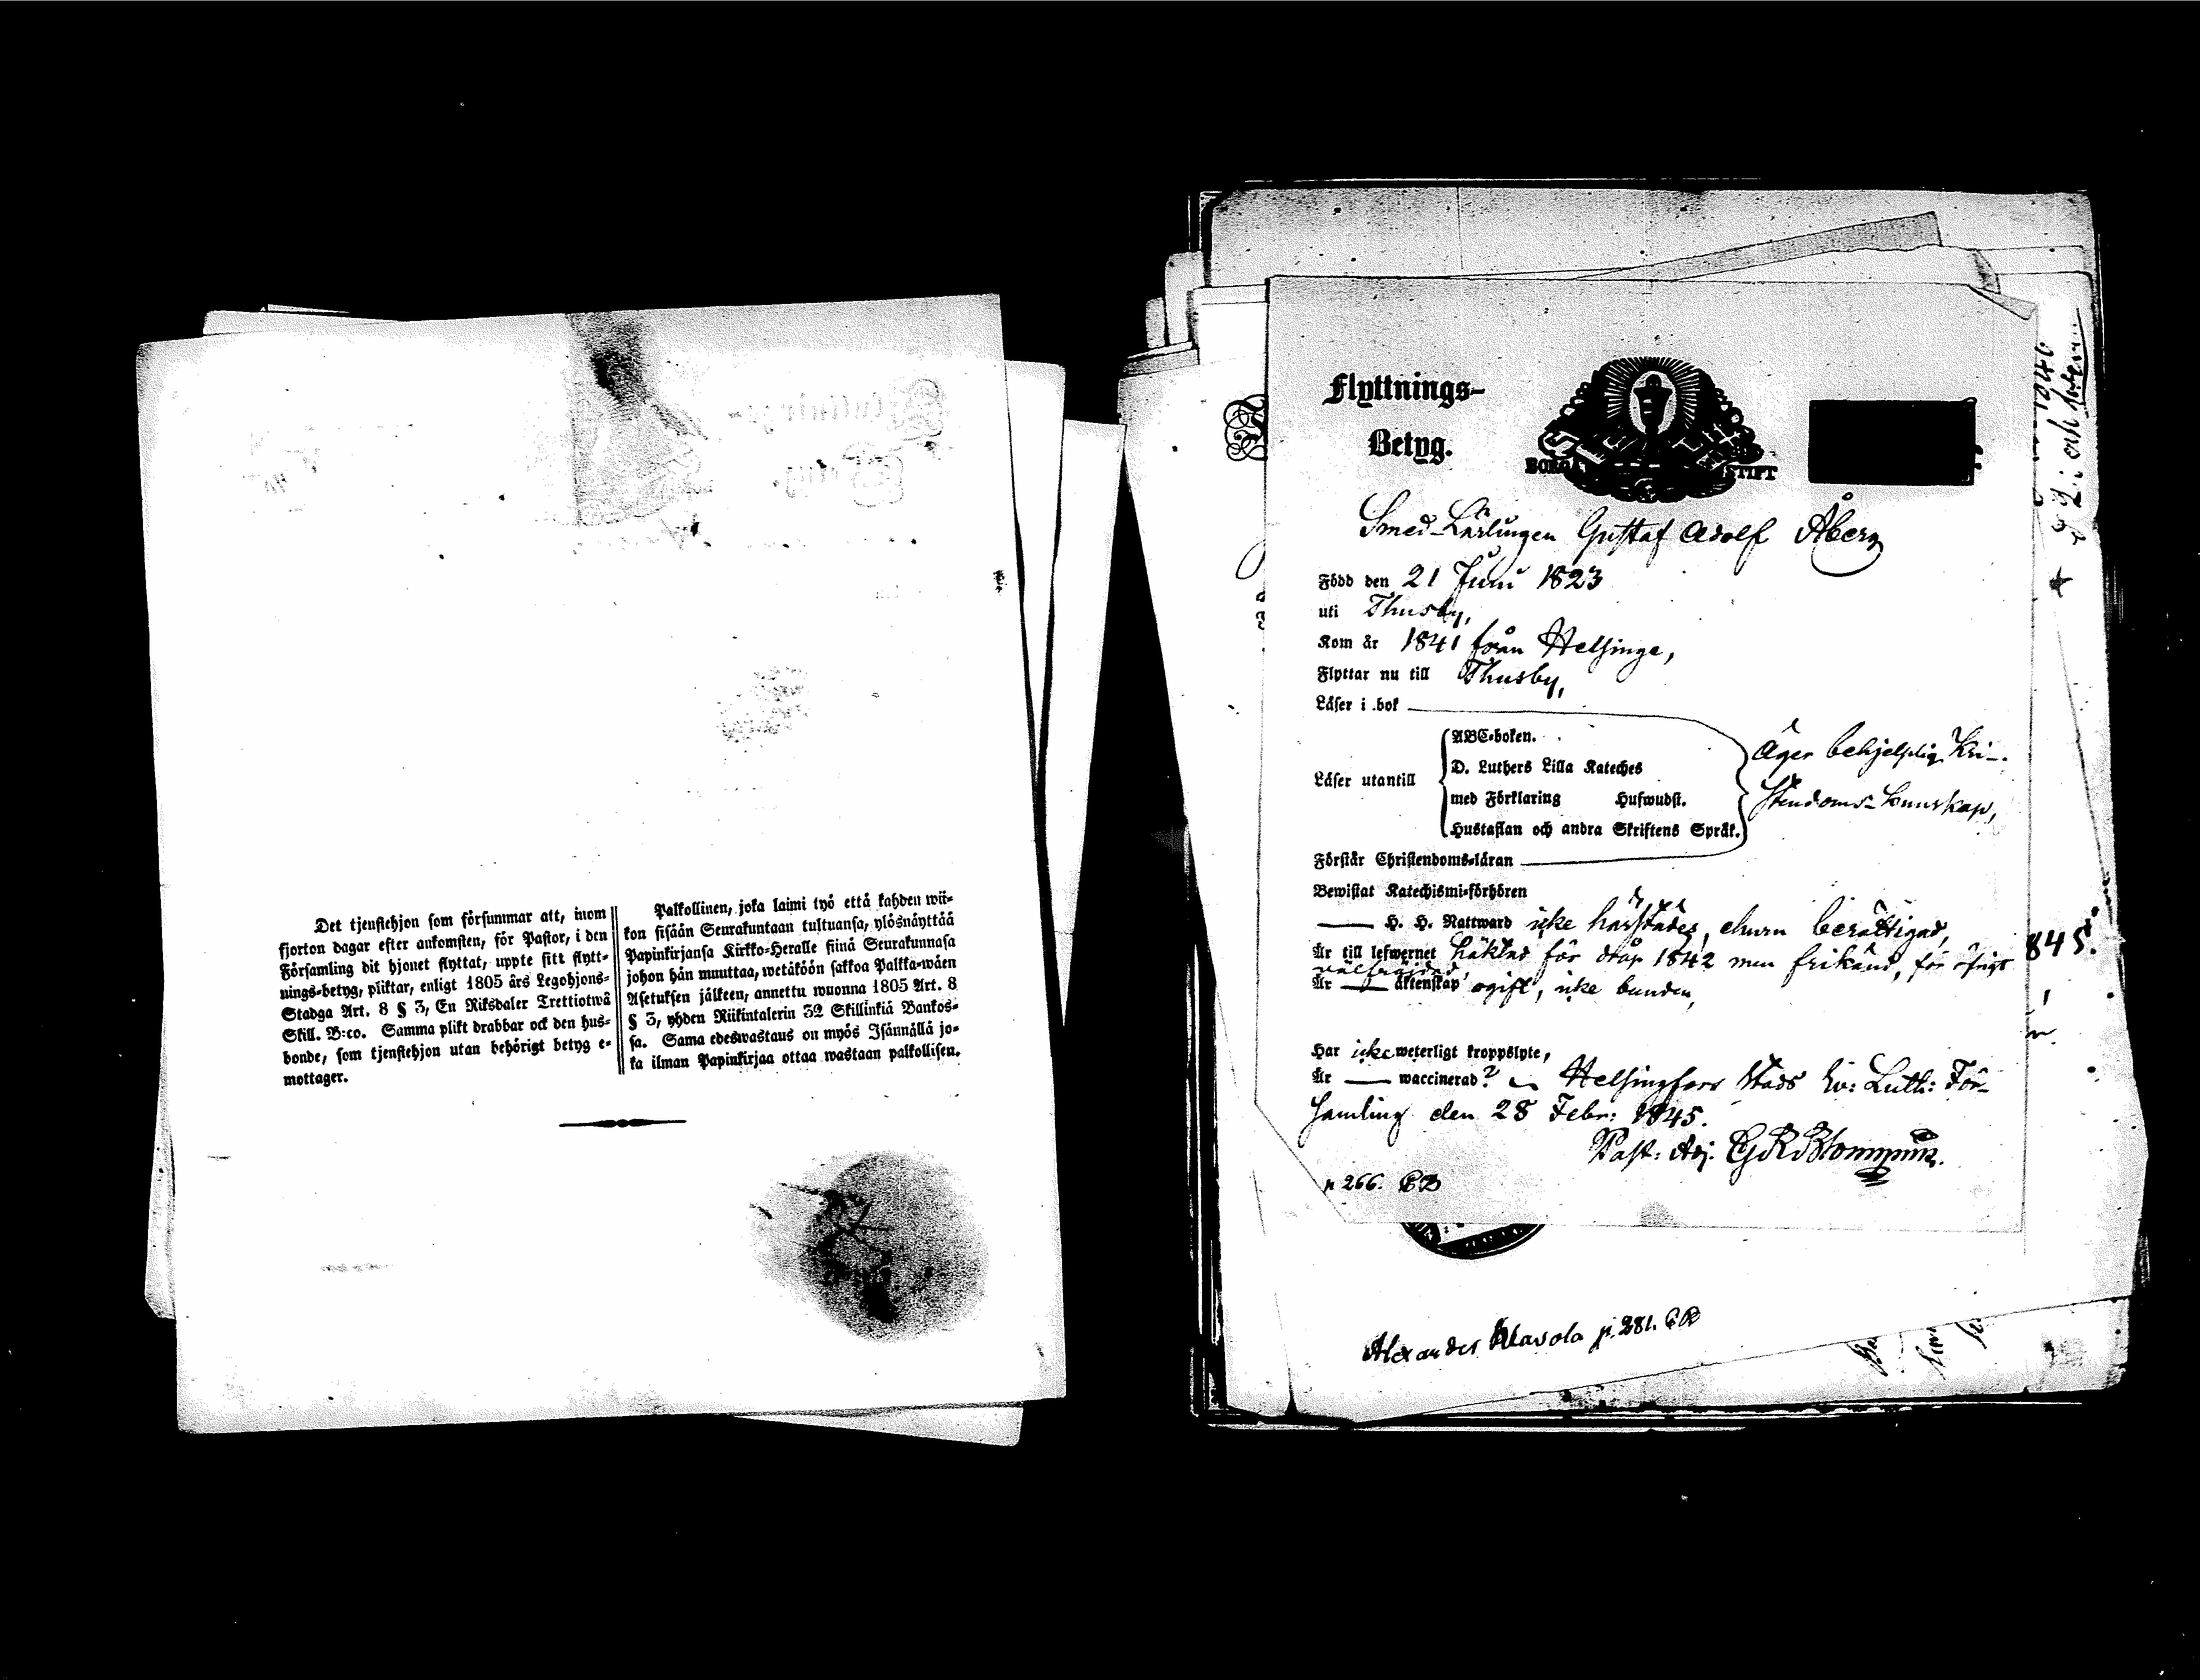 Det tjenstehjon som försummar att, inom
fjorton dagar efter ankomsten, för Pastor, i den
Församling dit hjonet flyttat, uppte sitt flytt-
nings-betyg, pliktar, enligt 1805 års Legohjons-
Stadga Art. 8 § 3, En Riksdaler Trettiotwå
Skill. B:co. Samma plikt drabbar ock den hus-
bonde, som tjenstehjon utan behörigt betyg e-
mottager.
Palkollinen, joka laimi lyö että kahden wii-
kon sisään Seurakuntaan tultuansa, ylösnäyttää
Papinkirjansa Kirkko-Heralle siinä Seurakunnasa
johon hän muuttaa, wetäköön sakkoa Palkka-wäen
Asetuksen jälkeen, annettu wuonna 1805 Art. 8
§ 3, yhden Riikintalerin 32 Skillinkiä Bankos-
sa. Sama edeswastaus on myös Isännällä jo-
ka ilman Papinkirjaa ottaa wastaan palkollisen.
Flyttnings-
Betyg.
BORGÅ STIFT
Smed-Lärlingen Gustaf Adolf Åberg
Född den 21 Juni 1823
uti Thusby,
Kom år 1841 från Helsinge,
Flyttar nu till Thusby,
Läser i bok
Läser utantill
ABC-boken.
D. Luthers Lilla Kateches
med Förklaring Hufwudst.
Hustaflan och andra Skriftens Språk.
Äger behjelplig Kri-
stendoms-kunskap,
Förstår Christendoms-läran
Bewistat Katechismi-förhören
H. H. Nattward icke härstädes, ehuru berättigad,
Är till lefwernet häktad för dråp 1842 men frikänd, för öfrigt
välfrejdad,
Är äktenskap ogift, icke bunden,
Har icke weterligt kroppslyte,
Är waccinerad? Helsingfors Stads Ev: Luth: För-
samling den 28 Febr: 1845.
Past: Adj.
p 266. CB
845.
Alexander p. 281. CB